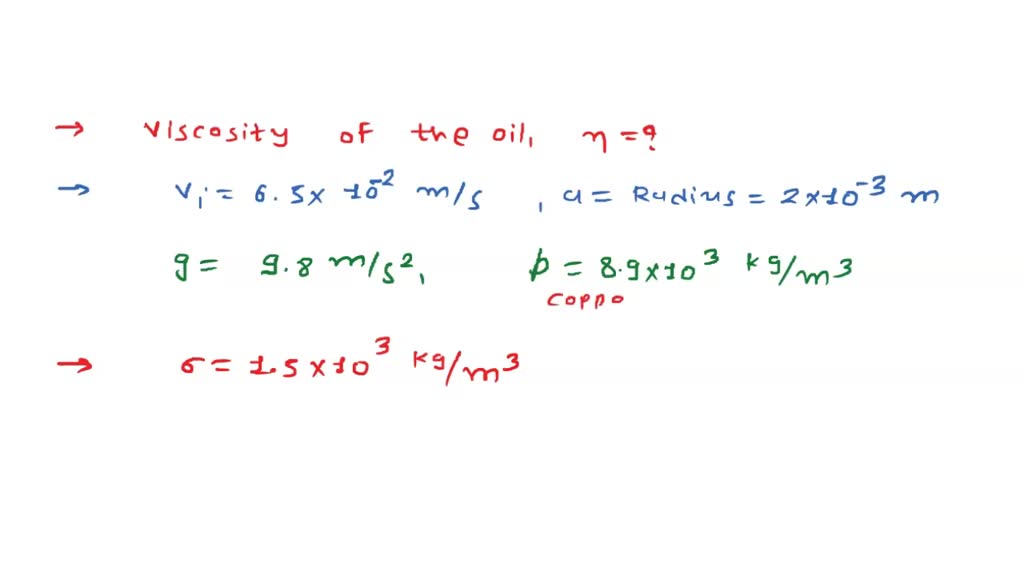 → Viscosity of the oil, η = ?
→ v₁ = 6.5 × 10⁻² m/s , a = Radius = 2 × 10⁻³ m
g = 9.8 m/s², ρ = 8.9 × 10³ kg/m³
coppo
→ σ = 1.5 × 10³ kg/m³